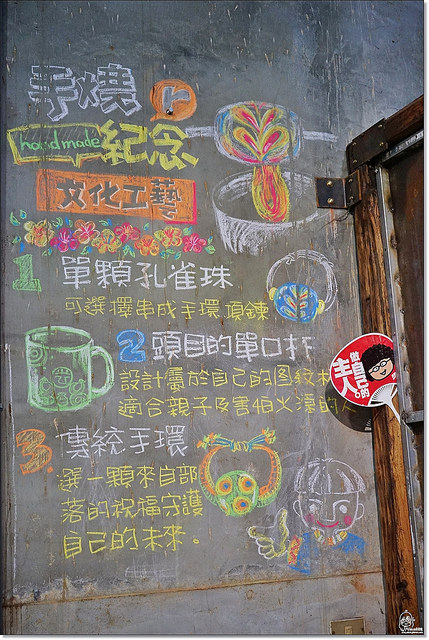 手燒
handmade 紀念
文化工藝
1 單顆孔雀珠
可選擇串成手環項鍊
2 頭目的單口杯
設計屬於自己的图紋杯
適合親子及害怕火源的人
3. 傳統手環
選一顆來自部
落的祝福守護
自己的未來。
做自己的
主人。